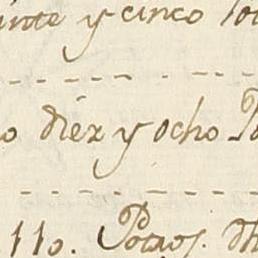 inte y cinco
o diéz y ocho
110. Potros. dh